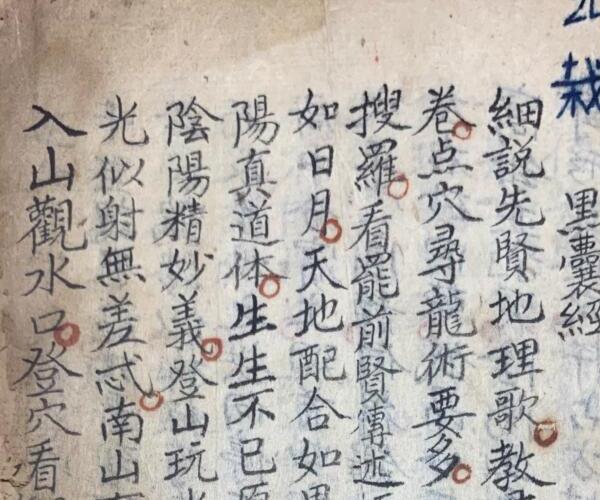 栽
黑囊經
細説先賢地理歌教
卷点穴尋龍術要多
搜羅看罷前賢傳述
如日月天地配合如
陽真道体生生不已
陰陽精妙義登山玩
光似射無差忒南山
入山觀水口登穴看